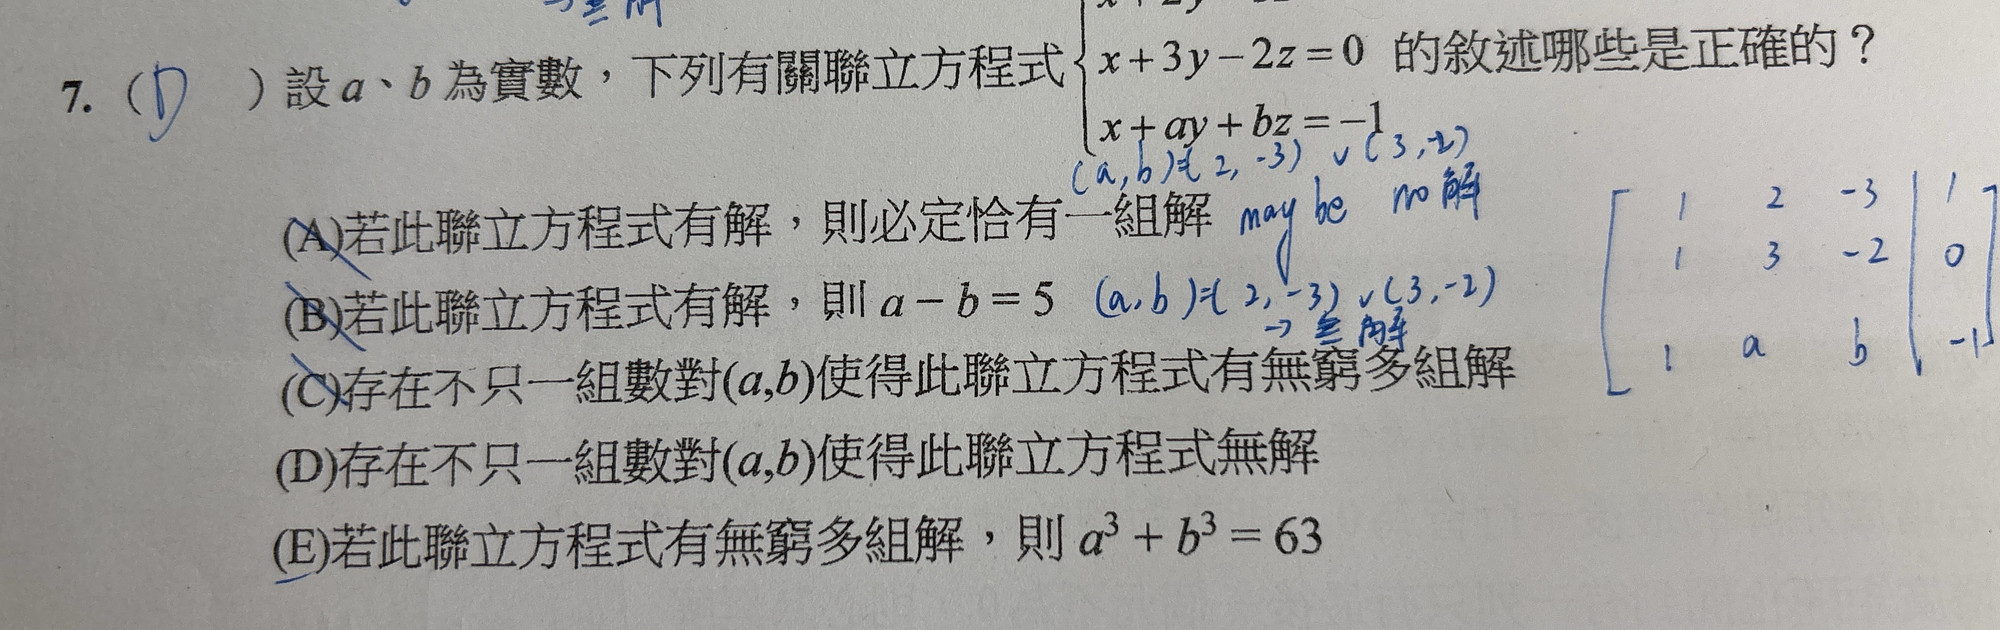 →無解
7. (D ) 設 a、b 為實數，下列有關聯立方程式 { x+3y−2z=0 的敘述哪些是正確的？
x+ay+bz=−1
(a,b)=(2,-3) ∨ (3,-2)
(A)若此聯立方程式有解，則必定恰有一組解 may be no解
(B)若此聯立方程式有解，則 a−b=5 (a,b)=(2,-3) ∨ (3,-2)
→無解
(C)存在不只一組數對(a,b)使得此聯立方程式有無窮多組解
(D)存在不只一組數對(a,b)使得此聯立方程式無解
(E)若此聯立方程式有無窮多組解，則 a³+b³=63
1 2 -3 | 1
1 3 -2 | 0
1 a b | -1